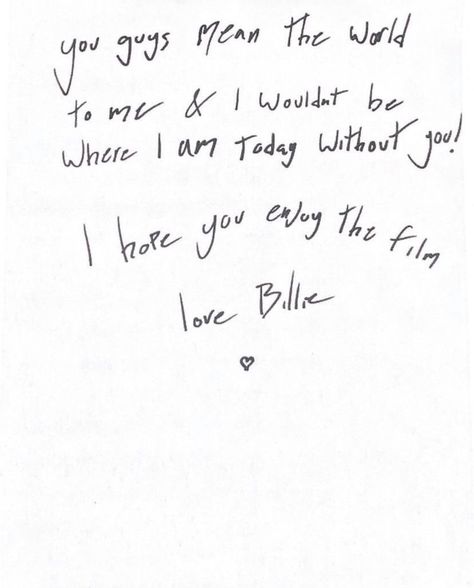 you guys mean the world
to me & I wouldnt be
where I am today without you!
I hope you enjoy the film
love Billie
♡